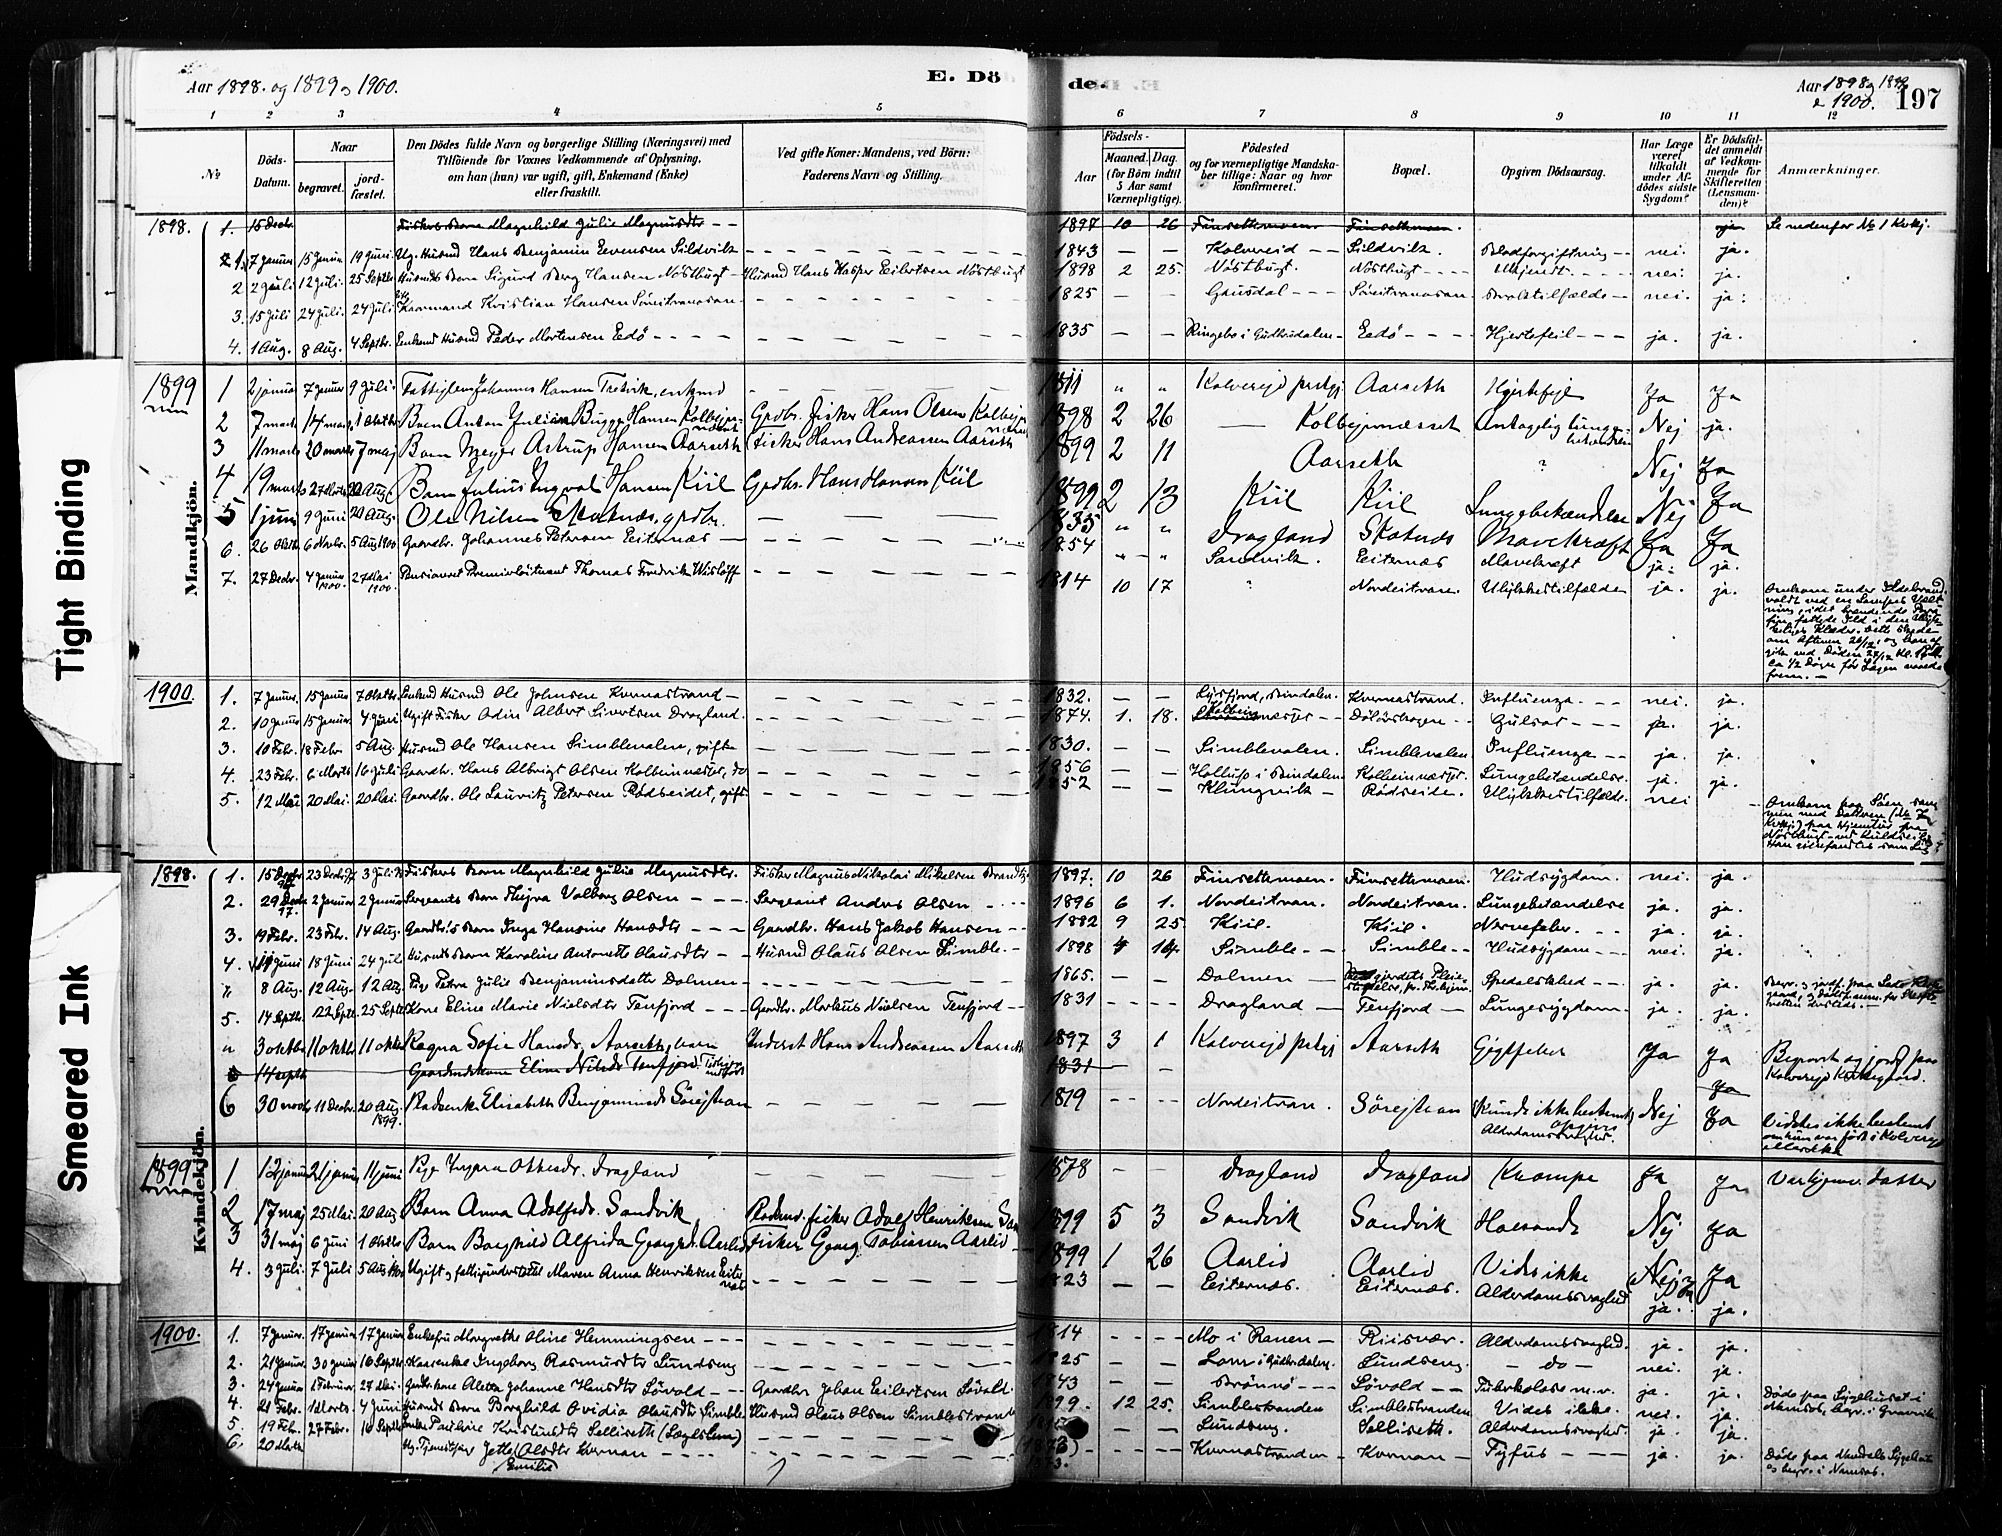 Aar 1898. og 1899 og 1900.
E. Døde.
Aar 1898 og 1899 & 1900.
197
1 2 3 4 5 6 7 8 9 10 11 12
No
Döds-Datum.
Naar
begravet.
jord-fæstet.
Den Dödes fulde Navn og borgerlige Stilling (Næringsvei) med
Tilföiende for Voxnes Vedkommende af Oplysning,
om han (hun) var ugift, gift, Enkemand (Enke)
eller fraskilt.
Ved gifte Koner: Mandens, ved Börn:
Faderens Navn og Stilling.
Födsels-
Aar
Maaned. Dag.
(for Börn indtil 5 Aar samt Værnepligtige).
Födested
og for værnepligtige Mandskaber tillige: Naar og hvor konfirmeret.
Bopæl.
Opgiven Dödsaarsag.
Har Læge været tilkaldt under Afdödes sidste Sygdom?
Er Dödsfaldet anmeldt af Vedkommende for Skifteretten (Lensmanden)?
Anmærkninger.
Tight Binding
Smeared Ink
Mandkjön.
1898. 1. 15 Decbr. Fiskers Barn Magnhild Julie Magnusdtr 1897 10 26 Finsethmoen Finsethmoen. ja Se nedenfor No 1 Kvkj.
1. 7 Januar 15 Januar 19 Juni Ug. Husmd Hans Benjamin Evensen Sildvik 1843 — — Kolvereid Sildvik Blodforgiftning nei. ja.
2 2 Juli 12 Juli 25 Septbr Husmds Barn Sigurd Berg Hansen Nöstbugt Husmd Hans Kasper Eilertsen Nöstbugt 1898 2 25. Nöstbugt. Nöstbugt Ukjendt nei. ja.
3. 15 Juli 24 Juli 24 Juli Kaarmand Kristian Hansen 1825 — — Gausdal nei. ja.
4. 1 Aug. 8 Aug. 4 Septbr. Enkemd Husmd Peder Mortensen Eedö 1835 — — Ringebo i Gudbrdalen Eedö Hjertefeil ja. ja.
1899 1 2 januar 7 januar 9 Juli. Fattiglem Johannes Hansen Tretvik, enkmd 1811 " " Kolvereid prstgj Aarseth Hjertefejl Ja Ja
2 7 marts 14 marts 1 Oktbr Barn Anton Julian Bugge Hansen Kolbeins-næsset Grdbr. Fisker Hans Olsen Kolbeinsnæsset 1898 2 26 — Kolbejnnæsset Antagelig lunge-betændelse Nej ja.
3 11 marts 20 marts 7 maj Barn Meyer Astrup Hansen Aarseth Fisker Hans Andreassen Aarseth 1899 2 11 Aarseth ? Nej Ja
4 19 marts 27 Marts 20 Aug. Barn Julius Ingval Hansen Kiil Grdbr. Hans Hansen Kiil 1899 2 13 Kiil Kiil Lungebetændelse Nej Ja
5 1 juni 9 Juni 20 Aug. Ole Nilsen Skotnæs, grdbr. 1835 " " Dragland Skotnæs Mavekræft Ja Ja
6. 26 Oktbr 6 Novbr. 5 Aug 1900 Gaardbr. Johannes Petersen Eiternæs 1854 " " Sandvik. Eiternæs Mavekræft ja. ja.
7. 27 Decbr. 4 Januar 1900. 27 Mai 1900. Pensioneret Premierlöitnant Thomas Fredrik Wislöff 1814 10 17 ? Nordeitvaren. Ulykkestilfælde ja. ja. Omkom under Ildebrand
voldt ved en Lampes Vælt-
ning, idet brændende Para-
fin fattede Ild i den
Klæder. Dette skede
om Aftenen 26/12, og han af-
gik ved Döden 27/12
ca 1/2 Dögn før Lægen naaede
frem. —
1900. 1. 7 Januar. 15 Januar 7 Oktbr. Enkemd Husmd Ole Johnsen Kvernastrand 1832. — — Lysfjord, Bindalen. Kvernastrand. Influenza nei. ja.
2. 10 Januar 15 Januar. 4 Juni. Ugift Fisker Odin Albert Sivertsen Dragland. 1874. 1. 18. Kolbeinnæsset Gulsot ja. ja.
3. 10 Febr. 18 Febr. 5 Aug. Husmd Ole Hansen Simblevalen, gift 1830. — — Simblevalen. Simblevalen Influenza ja. ja.
4. 23 Febr. 6 Marts 16 Juli Gaardbr. Hans Albrigt Olsen Kolbeinnæsset, do 1856 — — i Bindalen Kolbeinnæsset. Lungebetændelse. ja. ja.
5. 12 Mai 20 Mai. 20 Mai. Gaardbr. Ole Lauritz Petersen Rödseidet, gift 1852 — — Klungvik Rödseide. Ulykkestilfælde. nei Omkom paa Söen sam-
men med Datteren
paa Hjemtur fra
Nöstbugt
Kvindekjön.
1898. 1. 15 Decbr 97 23 Decbr 97 3 Juli Fiskers Barn Magnhild Julie Magnusdtr. Fisker Magnus Nikolai Mikelsen 1897. 10 26 Finsethmoen. Finsethmoen. Hudsygdom. nei. ja.
2. 29 Decbr 97. 2 Januar 2 Januar Sergeants Barn Thyra Valborg Olsen Sergeant Anders Olsen 1896 6 1. Nordeitvan. Nordeitvan. Lungebetændelse ja. ja.
3. 19 Febr. 23 Febr. 14 Aug. Gaardbr's Barn Inga Hansine Hansdtr Gaardbr. Hans Jakob Hansen 1882 9 25. Kiil. Kiil. Nervefeber. ja. ja.
4. 11 Juni 18 Juni 24 Juli Husmds Barn Karoline Antonette Olausdtr Husmd Olaus Olsen Simble 1898 4 14. Simble Simble Hudsygdom nei. ja.
8 Aug. 12 Aug. 12 Aug. Pige Petra Julie Benjaminsdatter Dolmen 1865. — — Dolmen Spedalskhed ja. ja.
5. 14 Septbr. 22 Septbr 25 Septbr Kone Eline Marie Nielsdtr Tenfjord Gaardbr. Markus Nielsen Tenfjord 1831 — — Dragland Tenfjord Lungesygdom. ja. ja.
" 3 oktbr 11 oktbr 11 oktbr Ragna Sofie Hansdr. Aarseth, barn Inderst Hans Andreassen Aarseth 1897 3 1 Kolvereid prstgj Aarseth Gigtfeber Ja Ja Begravet og jordf. paa
Kolvereid Kirkegaard.
14 septbr Gaardmdskone Eline Nilsdr Tenfjord. Tidligere indført 1831 — Ja
6 30 novbr 11 Decbr. 20 Aug. 1899. Rladsenke Elisabeth Benjaminsdr Sörejtran 1819 Nordeitvan. Sörejtran (Kunde ikke bestemt opgives) Alderdomssvaghed. Nej Ja Vidstes ikke bestemt
om hun var född i Kolvereid
eller ikke
1899 1 12 januar 21 januar 11 juni Pige Ingara Ottesdr. Dragland 1878 — — Dragland Dragland Krampe Ja Ja
2 17 maj 25 Mai. 20 Aug Barn Anna Adolfsdr. Sandvik Rladsmd. fisker Adolf Henriksen 1899 5 3 Sandvik Sandvik Halsonde Nej Ja
3 31 maj 6 Juni 1 Oktbr Barn Borghild Alfrida Georgsd. Aarlid Fisker Georg Tobiassen Aarlid 1899 1 26 Aarlid Aarlid Vides ikke Nej Ja
4. 3 Juli. 7 Juli 5 Aug Ugift og fattigunderstöttet Maren Anna Henriksen Eiternæs 1823 — — Eiternæs. Eiternæs. Alderdomssvaghed ja. ja.
1900. 1. 7 Januar. 17 Januar 17 Januar Enkefru Margrethe Oline Hemmingsen 1814 Mo i Ranen Riisvær. Alderdomssvaghed. ja. ja.
2. 21 Januar. 30 Januar 16 Septbr. Kaarenke Ingeborg Rasmusdtr Lundseng 1825 — — Lom i Gudbrdalen. Lundseng. — do — nei. ja.
3. 24 Januar 1 Februar 27 Mai. Gaardbr.kone Aletta Johanne Hansdtr Lövold Gaardbr Johan Eilertsen Lövold. 1843 — — Brönnö Lövold Tuberkulose m.v. ja. ja. Döde paa Sygehuset i
Namsos, begr. i Gravvik
4. 21 Febr. 1 Marts 4 Juni Husmds Barn Borghild Ovidia Olausdtr Simble Husmd Olaus Olsen Simblestranden 1899. 12 25. Simblestranden Simblestranden Vides ikke. nei. ja.
5. 19 Feb. 27 Febr. 16 Septbr Enke Pauline Kristiansdtr Sellisæth — — Lundseng. Sellisæth. Alderdomssvaghed. ja. ja.
6. 20 Marts Ug. Tjenestepige Jette Emilie Olsdtr Kvernan (1873) Kvernastranden Kvernan Tyfus ja. ja. Döde paa Namdals Sygehus
og begr. i Namsos.